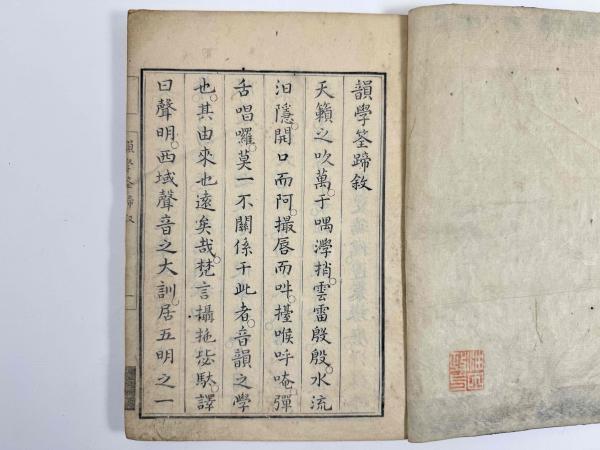 韻學筌蹄敘
天籟之吹萬于喁澩捎雲雷殷殷水流
汨隱開口而阿撮唇而吽擡喉呼唵彈
舌唱囉莫一不關係于此者音韻之學
也其由來也遠矣哉梵言攝拖苾馱譯
曰聲明西域聲音之大訓居五明之一
韻學筌蹄敘